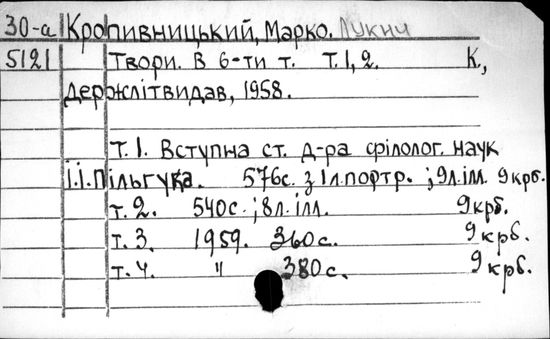 30-а Кропивницький, Марко. Лукич
5121 Твори. В 6-ти т. Т.1,2. К,
Держлітвидав, 1958.
Т.1. Вступна ст. д-ра філолог. наук
І.І. Пільгука. 576с. з 1л.портр. ; 9л.ілл. 9крб.
т.2. 540с. ; 8л.ілл. 9крб.
т.3. 1959. 360с. 9крб.
т.4. " 380с. 9крб.